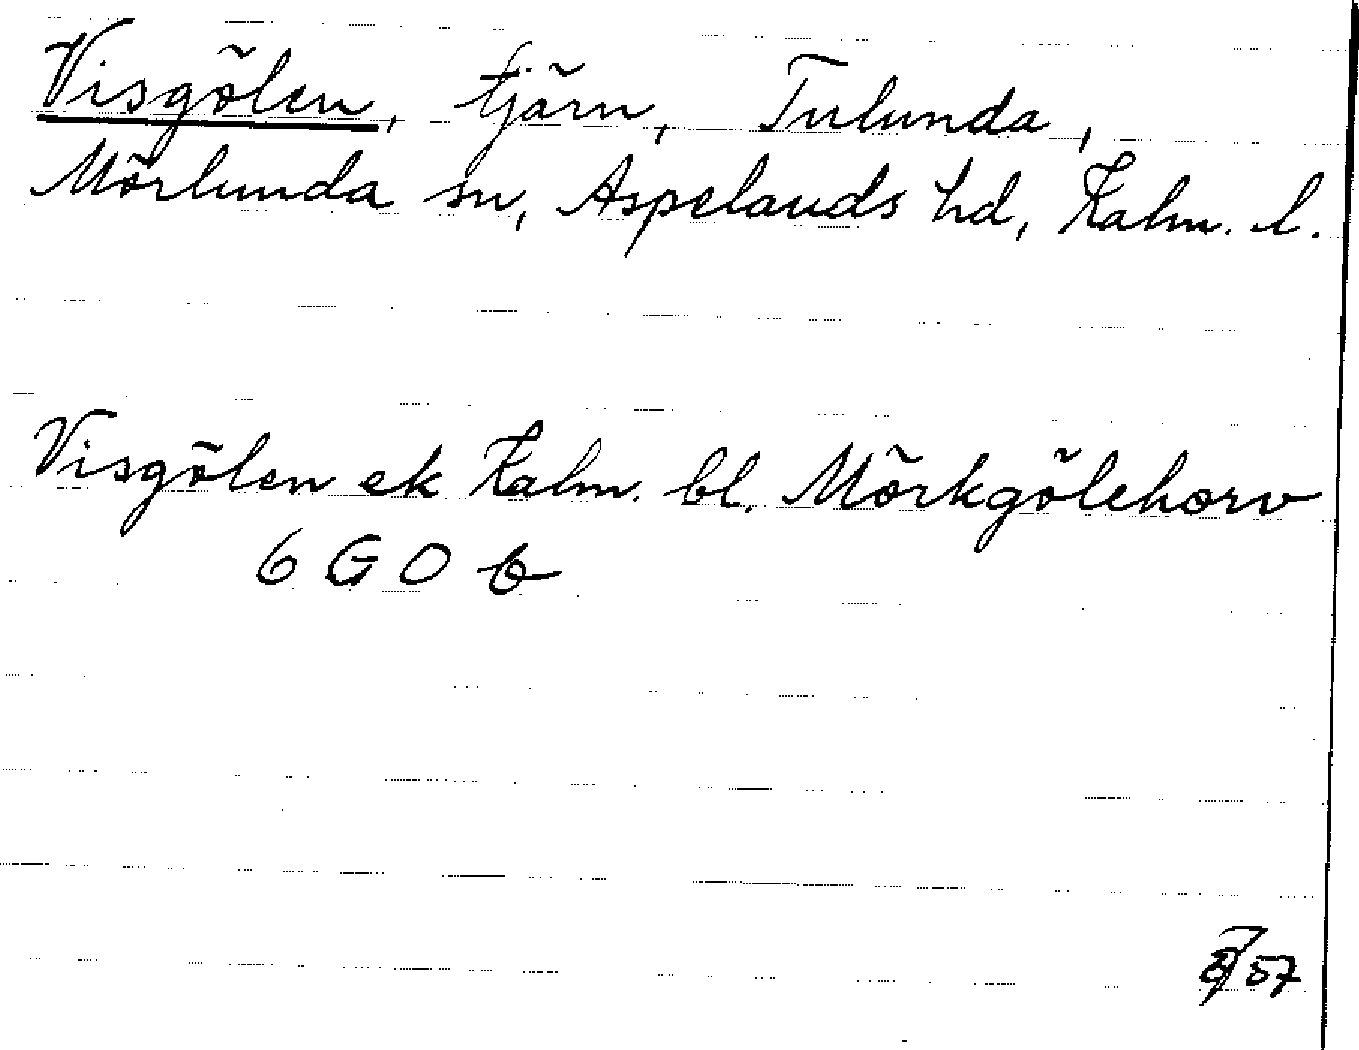 Visgölen, tjärn, Tulunda,
Mörlunda sn, Aspelands hd, Kalm. l.
Visgölen ek Kalm. bl. Mörkgölehorv
6 G O b
57